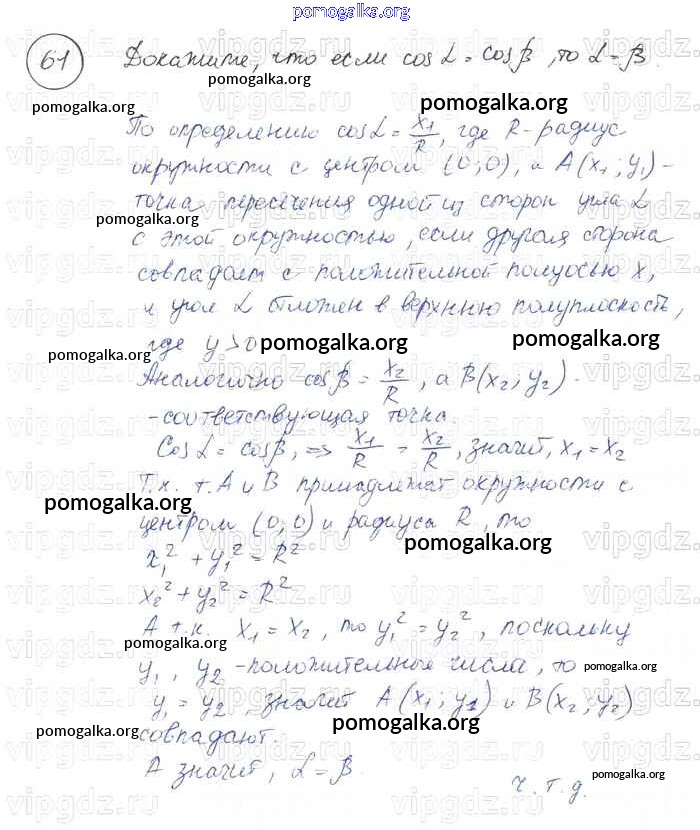 pomogalka.org
61 Докажите, что если cos α = cos β, то α = β.
pomogalka.org
pomogalka.org
По определению cos α = x₁/R, где R - радиус
окружности с центром (0;0), а A(x₁; y₁) -
точка пересечения одной из сторон угла α
pomogalka.org
с этой окружностью, если другая сторона
совпадает с положительной полуосью x,
и угол α отложен в верхнюю полуплоскость,
где y > 0
pomogalka.org
pomogalka.org
Аналогично cos β = x₂/R, а B(x₂; y₂) -
- соответствующая точка.
Cos α = cos β, => x₁/R = x₂/R, значит, x₁ = x₂
Т.к. т. A и B принадлежат окружности с
pomogalka.org
центром (0;0) и радиуса R, то
pomogalka.org
x₁² + y₁² = R²
x₂² + y₂² = R²
А т.к. x₁ = x₂, то y₁² = y₂², поскольку
y₁, y₂ - положительные числа, то
pomogalka.org
y₁ = y₂, значит A(x₁; y₁) и B(x₂; y₂)
pomogalka.org
pomogalka.org
совпадают.
А значит, α = β.
pomogalka.org
ч.т.д.